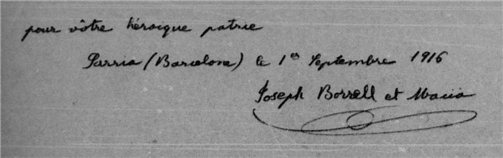 pour vôtre héroique patrie
Sarria (Barcelone) le 1er Septembre 1916
Joseph Borrell et Macia